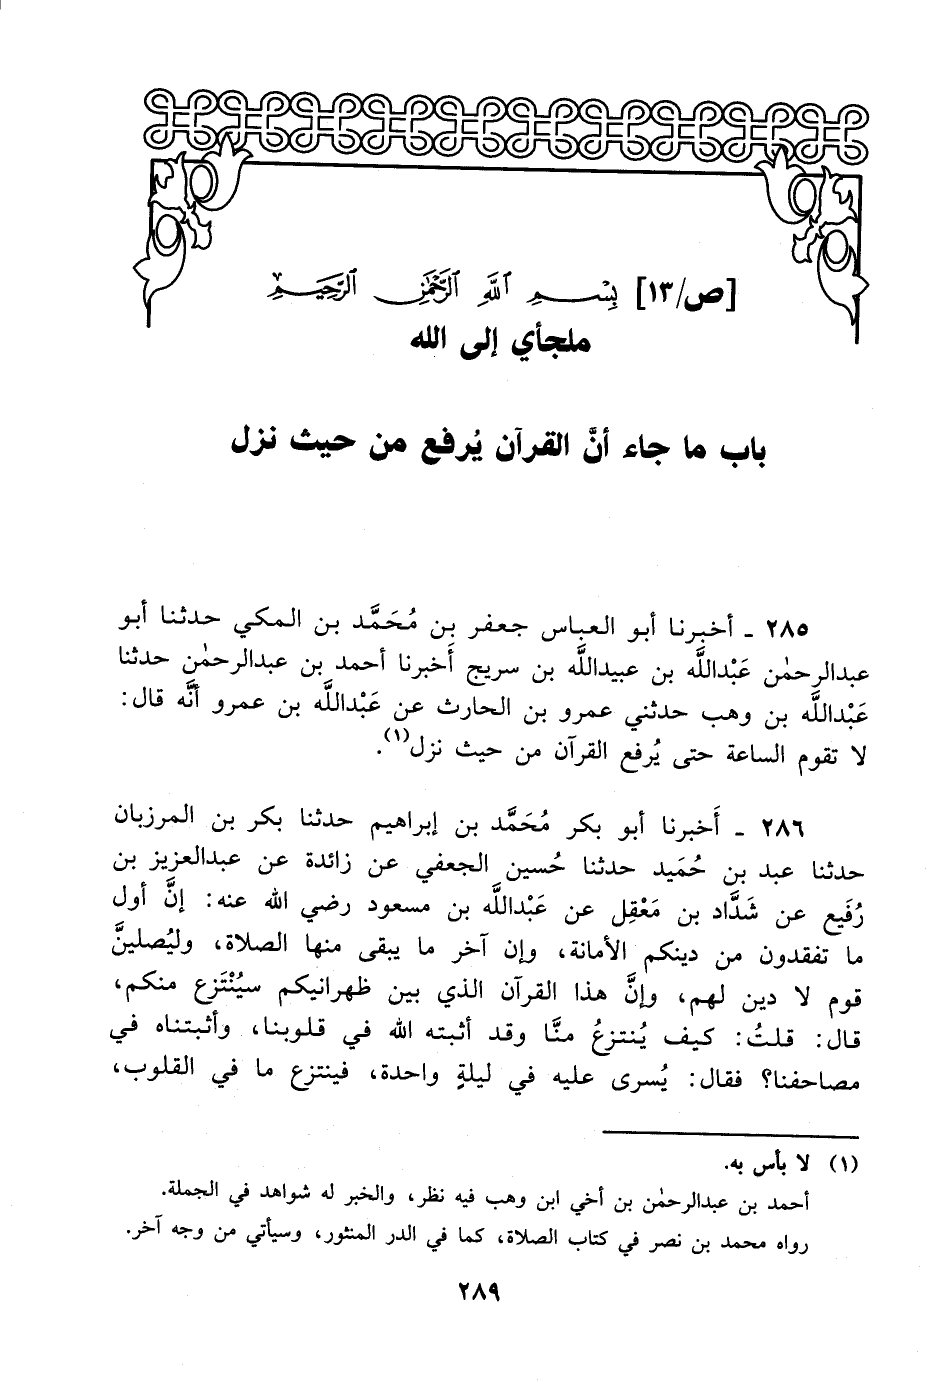 [ص/١٣] بِسْمِ اللَّهِ الرَّحْمَٰنِ الرَّحِيمِ
ملجأي إلى الله
باب ما جاء أنَّ القرآن يُرفع من حيث نزل
٢٨٥ ـ أخبرنا أبو العباس جعفر بن مُحَمَّد بن المكي حدثنا أبو
عبدالرحمٰن عَبْداللَّه بن عبيداللَّه بن سريج أَخبرنا أحمد بن عبدالرحمٰن حدثنا
عَبْداللَّه بن وهب حدثني عمرو بن الحارث عن عَبْداللَّه بن عمرو أنَّه قال:
لا تقوم الساعة حتى يُرفع القرآن من حيث نزل(١).
٢٨٦ ـ أَخبرنا أبو بكر مُحَمَّد بن إبراهيم حدثنا بكر بن المرزبان
حدثنا عبد بن حُمَيد حدثنا حُسين الجعفي عن زائدة عن عبدالعزيز بن
رُفَيع عن شَدَّاد بن مَعْقِل عن عَبْداللَّه بن مسعود رضي الله عنه: إنَّ أول
ما تفقدون من دينكم الأمانة، وإن آخر ما يبقى منها الصلاة، وليُصلينَّ
قوم لا دين لهم، وإنَّ هذا القرآن الذي بين ظهرانيكم سيُنْتَزع منكم،
قال: قلتُ: كيف يُنتزعُ منَّا وقد أثبته الله في قلوبنا، وأثبتناه في
مصاحفنا؟ فقال: يُسرى عليه في ليلةٍ واحدة، فينتزع ما في القلوب،
(١) لا بأس به.
أحمد بن عبدالرحمٰن بن أخي ابن وهب فيه نظر، والخبر له شواهد في الجملة.
رواه محمد بن نصر في كتاب الصلاة، كما في الدر المنثور، وسيأتي من وجه آخر.
٢٨٩